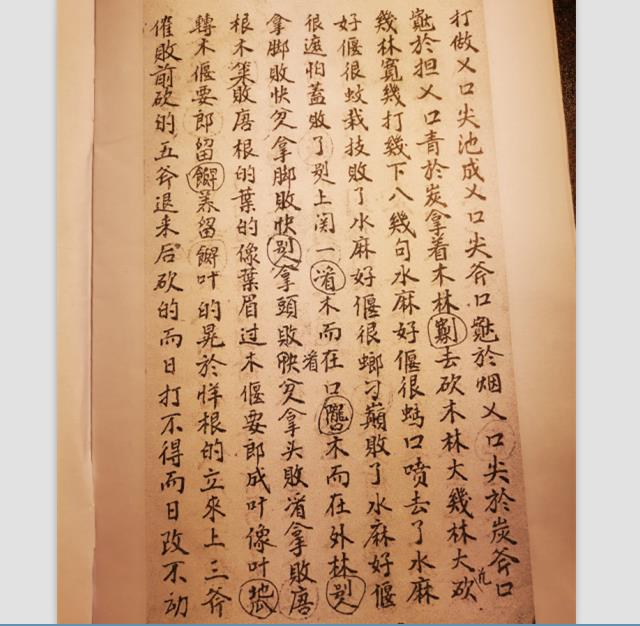 打做乂口尖池成乂口尖斧口於烟乂口尖於炭斧口
於担乂口青於炭拿着木林去砍木林大幾林大砍
幾林寬幾打幾下八幾句水麻好偃很螞口噴去了水麻
好偃很蚊栽技敗了水麻好偃很螂刁巔敗了水麻好偃
很遮怕蓋敗了别上関一渚木而在口木而在外林别
拿脚敗快㝸拿脚敗快别拿頭敗㝸拿头敗渚拿敗唐
根木築敗唐根的葉的像葉眉过木偃要郎成叶像叶
轉木偃要郎留養留叶的晃於样根的立來上三斧
催敗前砍的五斧退来后砍的而日打不得而日改不动